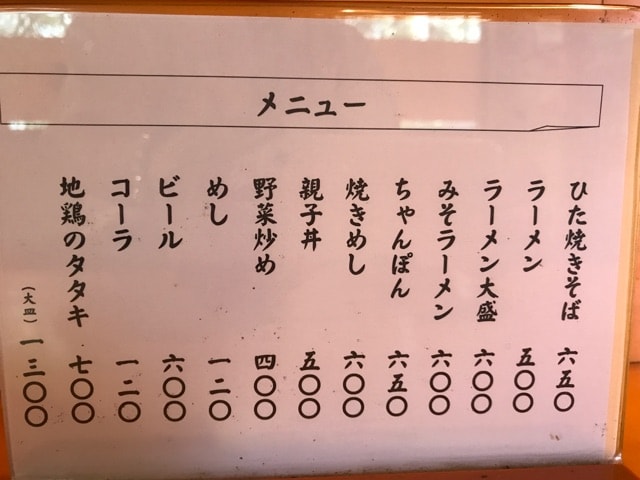 メニュー
ひた焼きそば 六五〇
ラーメン 五〇〇
ラーメン大盛 六〇〇
みそラーメン 六〇〇
ちゃんぽん 六五〇
焼きめし 六〇〇
親子丼 五〇〇
野菜炒め 四〇〇
めし 一二〇
ビール 六〇〇
コーラ 一二〇
地鶏のタタキ 七〇〇
(大皿) 一三〇〇